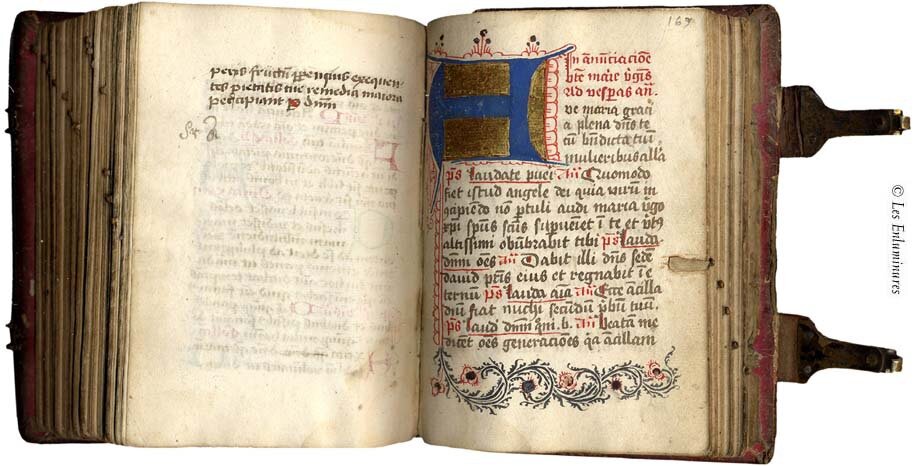 peris fructu
tes pietatis tue remedia maiora
percipiant p dnm
169
In anuciacoe
bte marie vgis
Ad vesperas an.
Ave maria graci
a plena dns te
cu bndicta tu i
mulieribus alla
ps laudate pueri an Quomodo
fiet istud angele dei quia viru in
audi maria vgo
xpi spus scus supueiet i te et vtus
altissimi obubrabit tibi ps lauda
dnm oes an Dabit illi dns sede
david pris eius et regnabit i e
ternu ps lauda aia an Ecce ancilla
dni fiat michi secundu vbu tuu
ps laud dnm qm. b. an beata me
dicet oes generacioes qa ancillam
© Les Enluminures